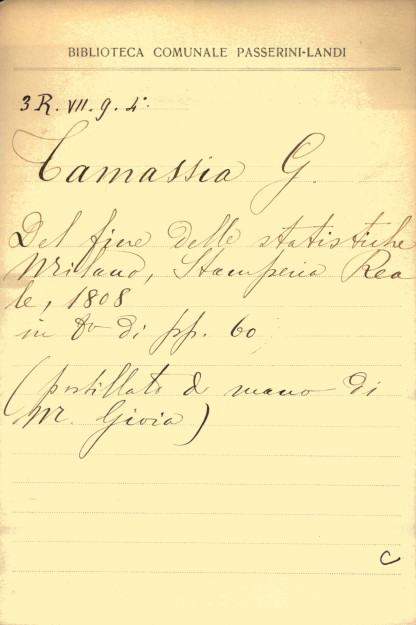 BIBLIOTECA COMUNALE PASSERINI-LANDI
3 R. VII. 9. 4°.
Tamassia G.
Del fine delle statistiche
Milano, Stamperia Rea
le, 1808
in 8vo di pp. 60
(postillato di mano di
M. Gioia)
C